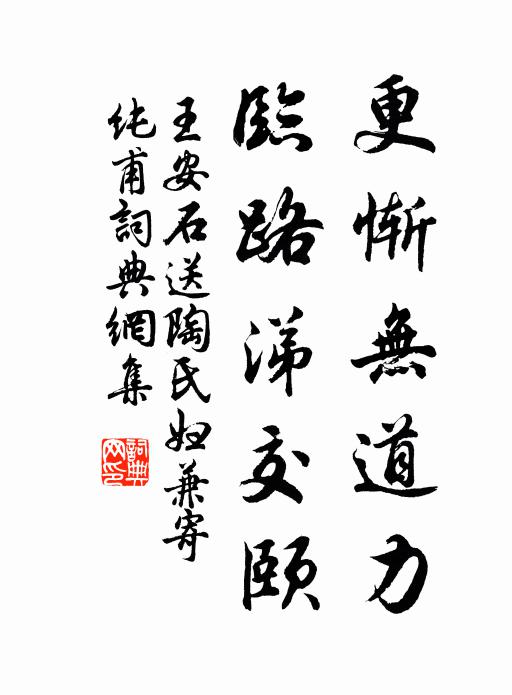 更慚無道力
臨路涕交頤
王安石送陶氏婦兼寄
純甫詞典網集
詞典
网印